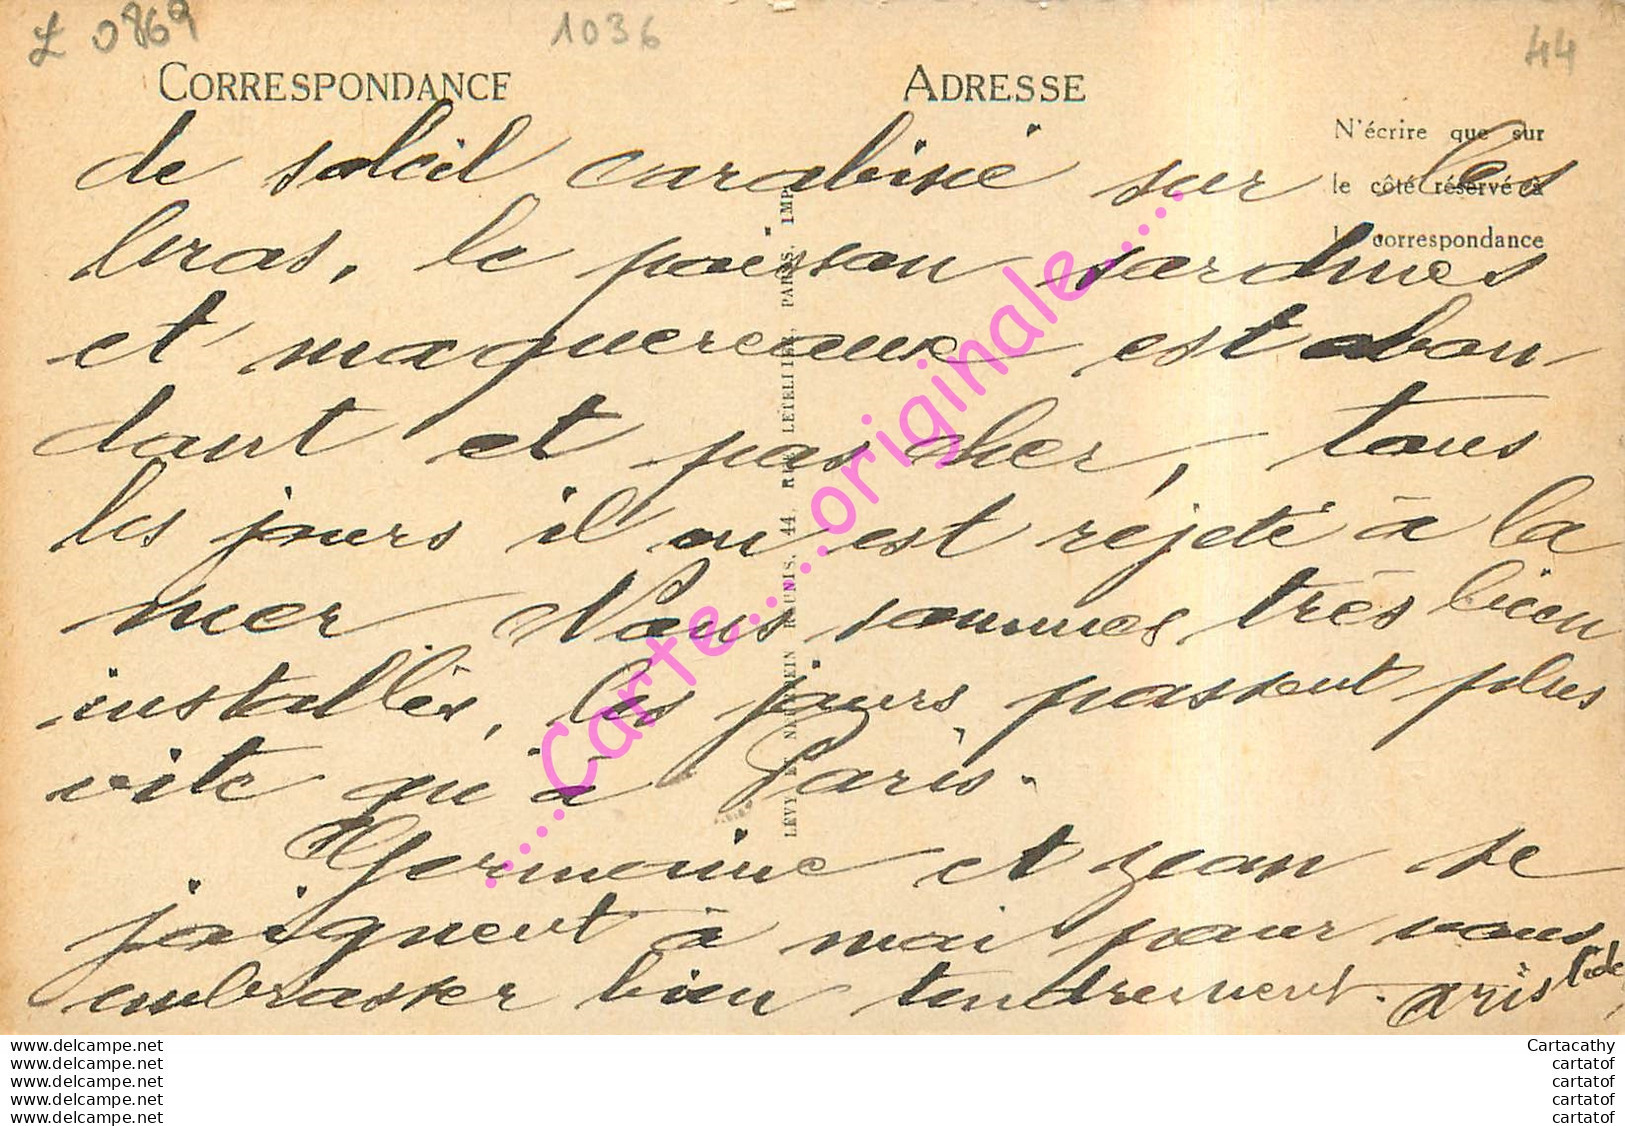 £ 0869 1036 44
CORRESPONDANCE ADRESSE
N'écrire que sur
le côté réservé à
la correspondance
de soleil carabiné sur les
bras, le poisson sardines
et maquereaux est abon
dant et pas cher, tous
les jours il en est rejeté à la
mer. Nous sommes très bien
installés, les jours passent plus
vite qu'à Paris.
Germaine et Jean se
joignent à moi pour vous
embrasser bien tendrement. Aristide
LÉVY & NEURDEIN RÉUNIS, 44, RUE LETELLIER, PARIS, IMP.
.....Carte.....originale.....
www.delcampe.net Cartacathy
www.delcampe.net cartatof
www.delcampe.net cartatof
www.delcampe.net cartatof
www.delcampe.net cartatof